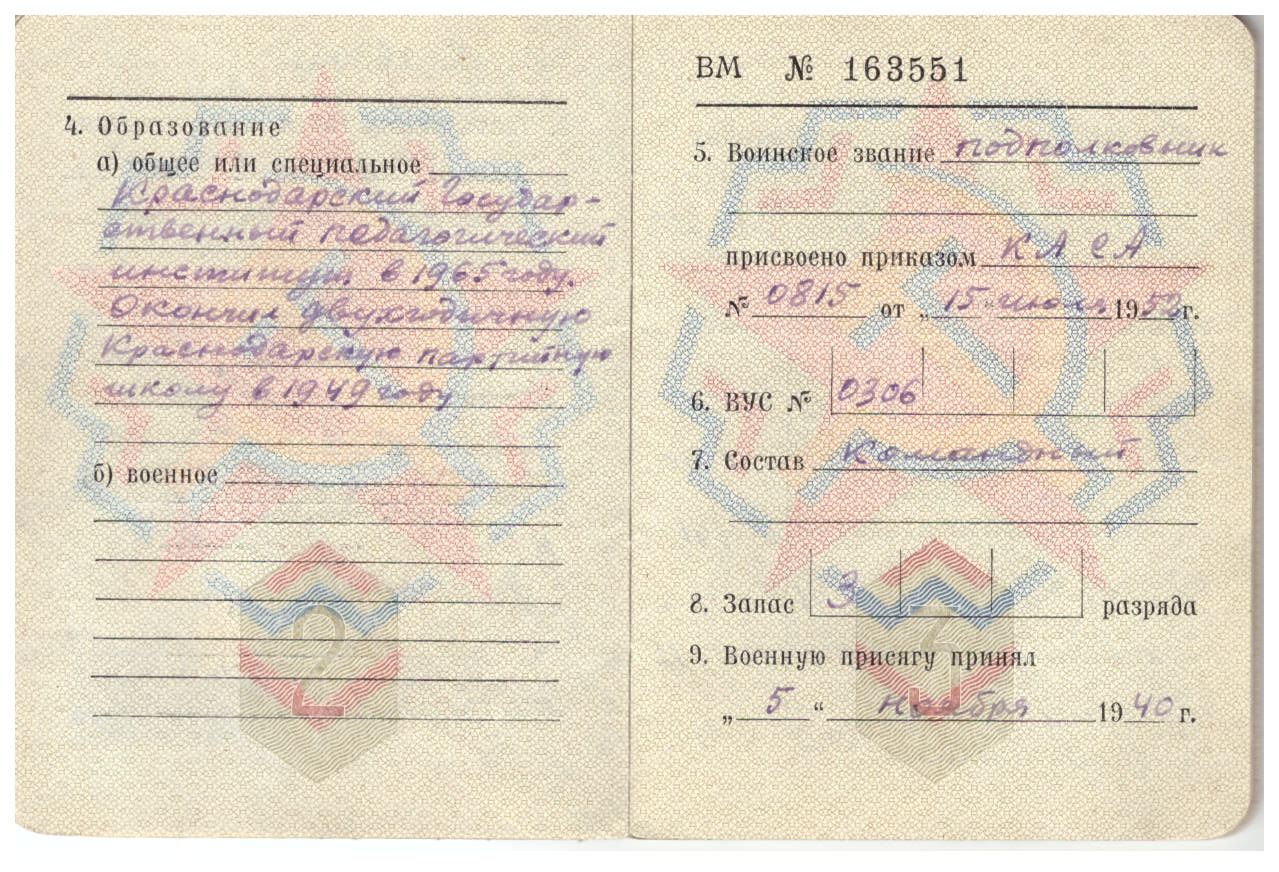 4. Образование
а) общее или специальное
Краснодарский Государ-
ственный педагогический
институт в 1965 году.
Окончил двухгодичную
Краснодарскую партийную
школу в 1949 году
б) военное
2
ВМ № 163551
5. Воинское звание подполковник
присвоено приказом КА СА
№ 0815 от „15“ июля 1952 г.
6. ВУС № 0306
7. Состав Командный
8. Запас 3 разряда
9. Военную присягу принял
„ 5 “ ноября 1940 г.
3